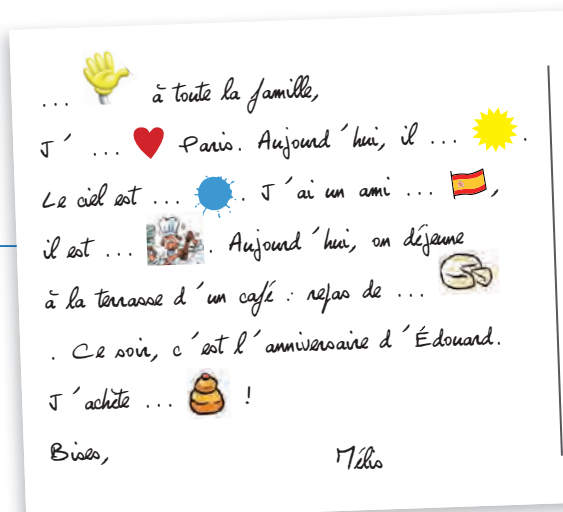 ... à toute la famille,
J' ... Paris. Aujourd'hui, il ... .
Le ciel est ... . J'ai un ami ... ,
il est ... . Aujourd'hui, on déjeune
à la terrasse d'un café : repas de ...
. Ce soir, c'est l'anniversaire d'Édouard.
J'achète ... !
Bises, Mélis